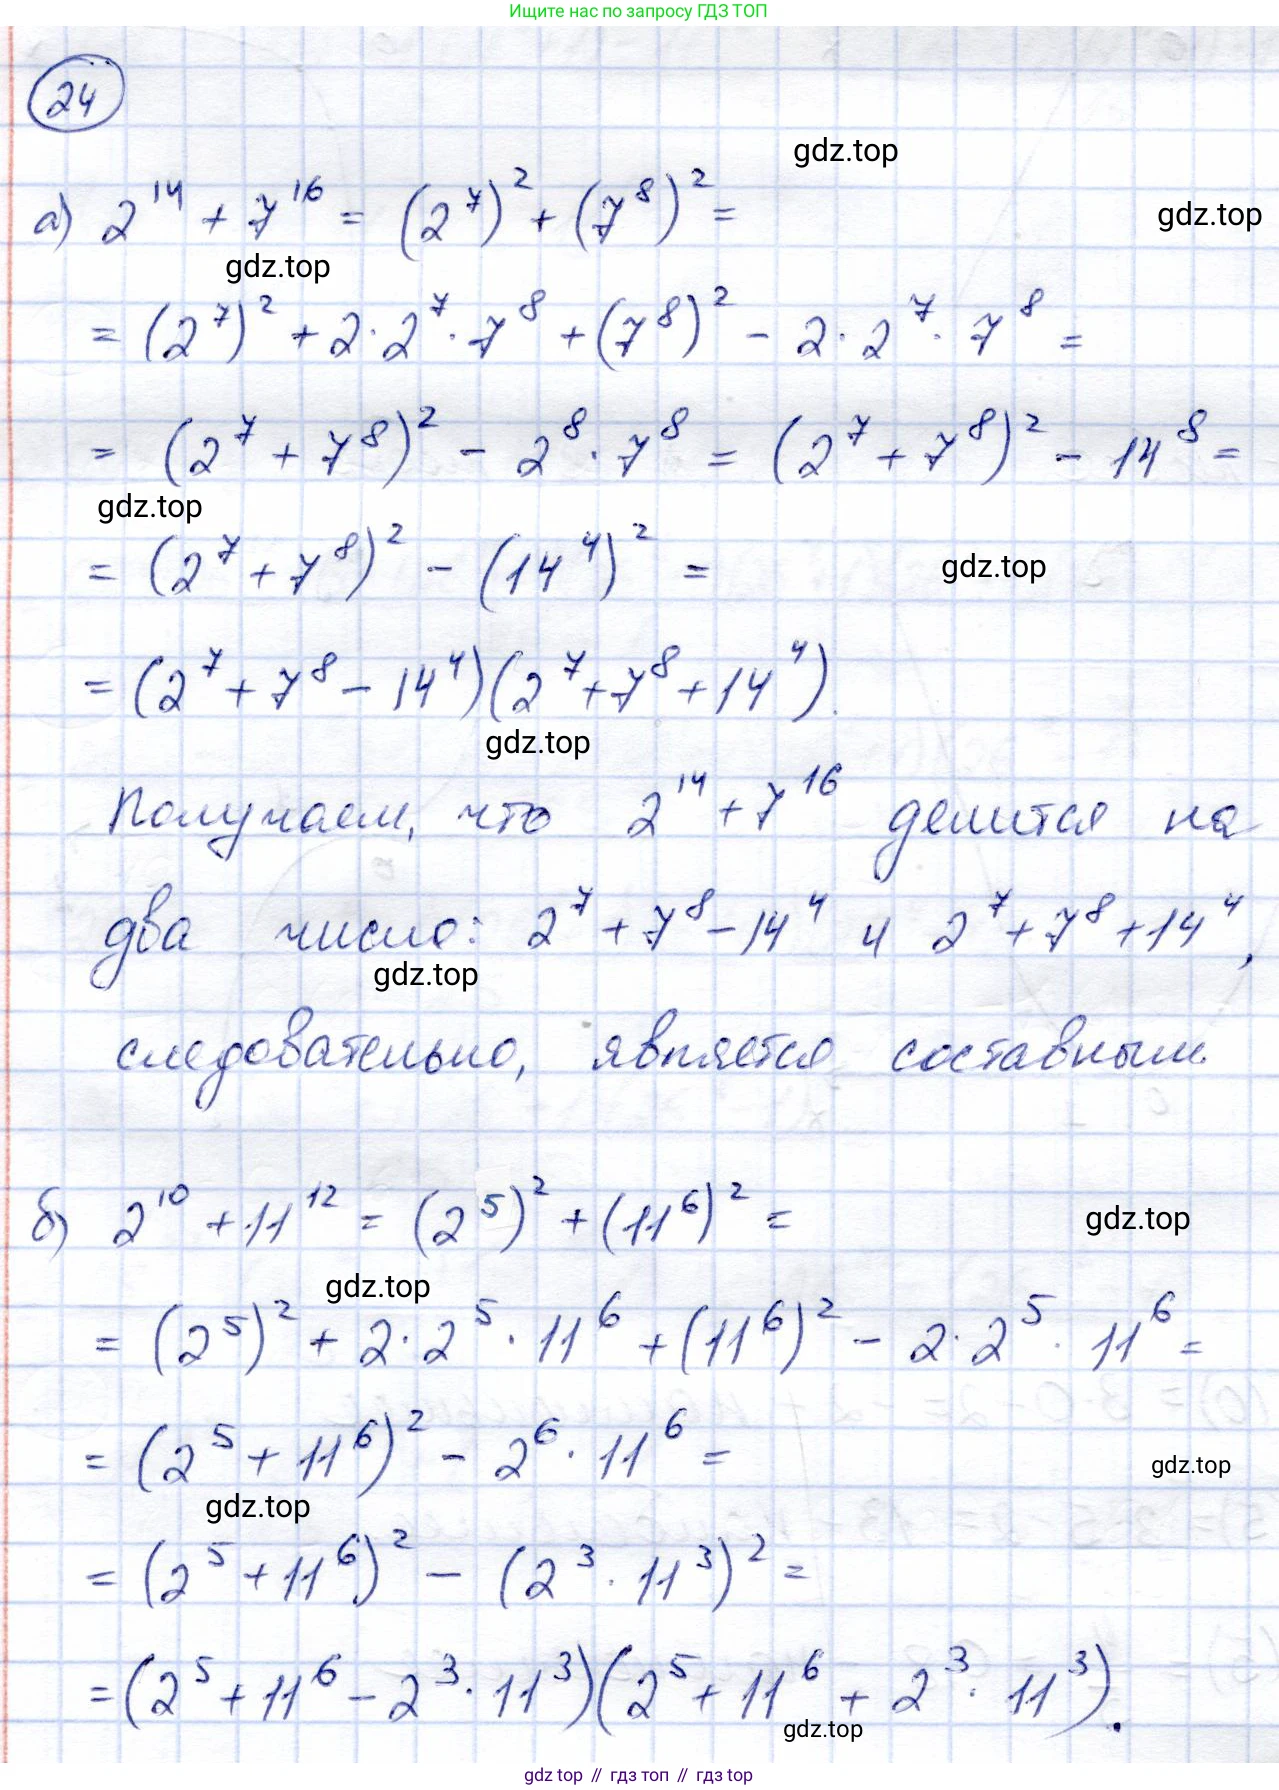 Ищите нас по запросу ГДЗ ТОП
24
gdz.top
а) 2^14 + 7^16 = (2^7)^2 + (7^8)^2 =
gdz.top
gdz.top
= (2^7)^2 + 2·2^7·7^8 + (7^8)^2 − 2·2^7·7^8 =
= (2^7 + 7^8)^2 − 2^8·7^8 = (2^7 + 7^8)^2 − 14^8 =
gdz.top
= (2^7 + 7^8)^2 − (14^4)^2 =
gdz.top
= (2^7 + 7^8 − 14^4)(2^7 + 7^8 + 14^4).
gdz.top
Получаем, что 2^14 + 7^16 делится на
два число: 2^7 + 7^8 − 14^4 и 2^7 + 7^8 + 14^4,
gdz.top
следовательно, является составным.
б) 2^10 + 11^12 = (2^5)^2 + (11^6)^2 =
gdz.top
gdz.top
= (2^5)^2 + 2·2^5·11^6 + (11^6)^2 − 2·2^5·11^6 =
= (2^5 + 11^6)^2 − 2^6·11^6 =
gdz.top
gdz.top
= (2^5 + 11^6)^2 − (2^3·11^3)^2 =
= (2^5 + 11^6 − 2^3·11^3)(2^5 + 11^6 + 2^3·11^3).
gdz.top
gdz top // гдз топ // гдз top